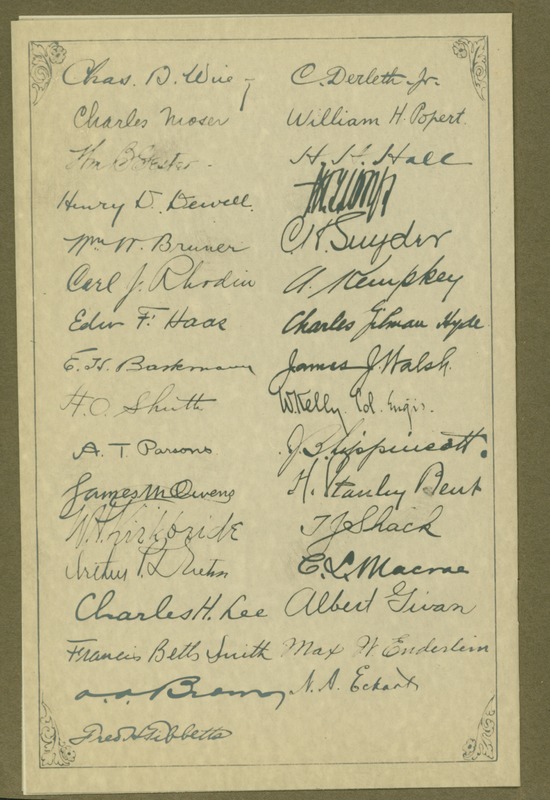 Chas. D. Wing
Charles Moser
Henry D. Dewell.
Wm W. Bruner
Carl J. Rhodin
Edw F. Haas
E. H.
H. O.
A. T. Parsons
James M Owens
W. H. Kirkbride
Arthur
Charles H. Lee
Francis Betts Smith
Fred H Tibbetts
C. Derleth Jr.
William H. Popert.
H. H. Hall
C. H. Snyder
A. Kempkey
Charles Gilman Hyde
James J. Walsh.
W. Kelly. Col. Engrs.
J. B. Lippincott.
H. Stanley Bent
T J Shack
C. L. Macrae
Albert Givan
Max W Enderlein
N. A. Eckart